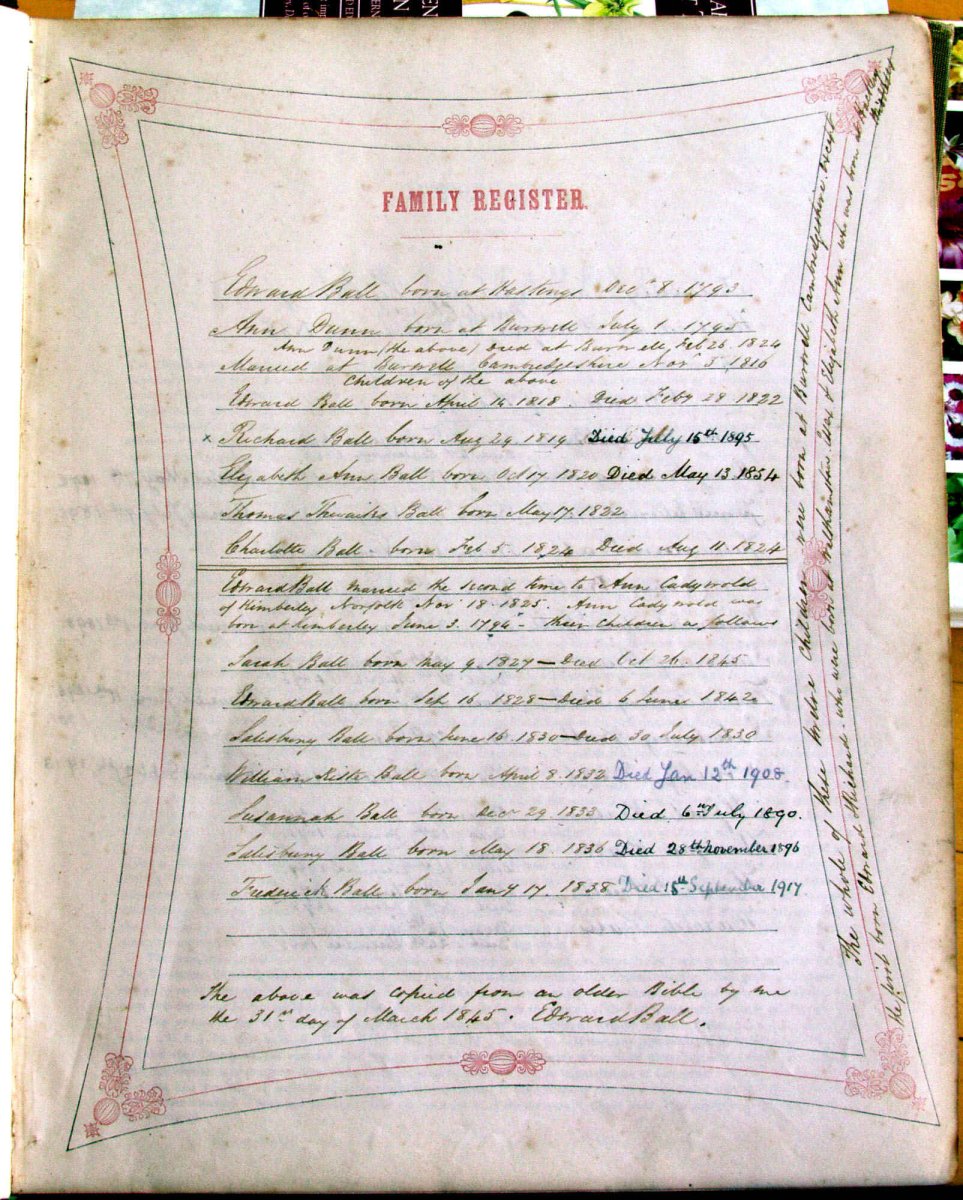 FAMILY REGISTER.
Edward Ball born at Hastings Decr 8. 1793
Ann Dunn born at Burwell July 1. 1795
Ann Dunn (the above) Died at Burwell, Feb 26. 1824
Married at Burwell Cambridgeshire Novr 5 1816
Children of the above
Edward Ball born April 14. 1818. Died Feby 28. 1822
x Richard Ball born Aug 29. 1819 Died July 15th 1895
Elizabeth Ann Ball born Oct 17. 1820 Died May 13. 1854
Thomas Thwaites Ball born May 17. 1822
Charlotte Ball. born Feb 5. 1824 Died Aug 11. 1824
Edward Ball married the second time to Ann Cadywold
of Kimberley, Norfolk Nov. 18. 1825. Ann Cadywold was
born at Kimberley June 3. 1794 - their children as follows
Sarah Ball born May 9. 1827 — Died Oct 26. 1845
Edward Ball born Sep 16. 1828 — Died 6 June 1842
Salisbury Ball born June 16 1830 — Died 30 July 1830
William Ball born April 8. 1832 Died Jan 12th 1908.
Susannah Ball born Decr 29 1833 Died 6th July 1890.
Salisbury Ball born May 18. 1836 Died 28th November 1896
Frederick Ball. born Jany 17. 1838 Died 18th September 1917
The above was copied from an older Bible by me
the 31st day of March 1845. Edward Ball.
The whole of these twelve children were born at Burwell Cambridgeshire except
the first born Edward & Richard who were born at Walthamstow Essex & Elizabeth Ann who was born at